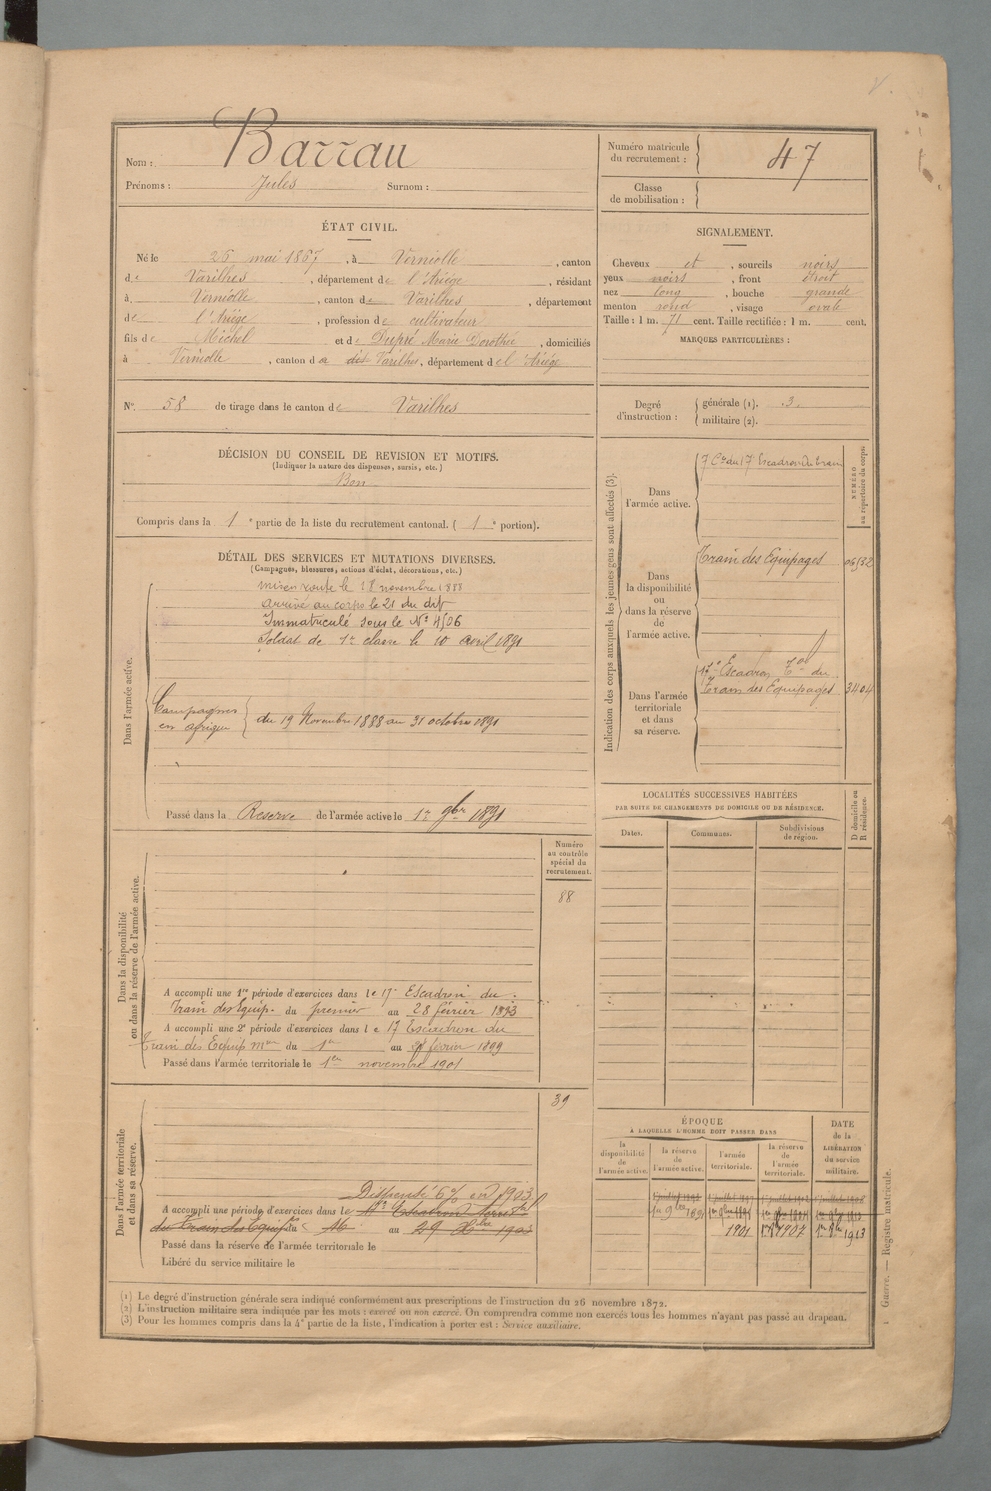 Nom : Barrau
Prénoms : Jules Surnom :
Numéro matricule du recrutement : 47
Classe de mobilisation :
ÉTAT CIVIL.
Né le 26 mai 1867, à Verniolle, canton
de Varilhes, département de l'Ariége, résidant
à Verniolle, canton de Varilhes, département
de l'Ariége, profession de cultivateur
fils de Michel et de Dupré Marie Dorothée, domiciliés
à Verniolle, canton d dit Varilhes, département de l'Ariége
SIGNALEMENT.
Cheveux et, sourcils noirs
yeux noirs, front étroit
nez long, bouche grande
menton rond, visage ovale
Taille : 1 m. 71 cent. Taille rectifiée : 1 m. cent.
MARQUES PARTICULIÈRES :
N° 58 de tirage dans le canton de Varilhes
Degré d'instruction :
générale (1). 3.
militaire (2).
DÉCISION DU CONSEIL DE REVISION ET MOTIFS.
(Indiquer la nature des dispenses, sursis, etc.)
Bon
Compris dans la 1e partie de la liste du recrutement cantonal. ( 1e portion).
DÉTAIL DES SERVICES ET MUTATIONS DIVERSES.
(Campagnes, blessures, actions d'éclat, décorations, etc.)
Dans l'armée active.
mis en route le 18 novembre 1888
arrivé au corps le 21 du dit
Immatriculé sous le N° 4506
Soldat de 1re classe le 10 avril 1891
Campagnes
en afrique
du 19 Novembre 1888 au 31 octobre 1891
Passé dans la Reserve de l'armée active le 1er 9bre 1891
Indication des corps auxquels les jeunes gens sont affectés (3).
NUMÉRO au répertoire du corps
Dans l'armée active.
7e Cie du 17 Escadron du train
Dans la disponibilité ou dans la réserve de l'armée active.
Train des Equipages
Dans l'armée territoriale et dans sa réserve.
17e Escadron Tal du
Train des Equipages 3404
LOCALITÉS SUCCESSIVES HABITÉES
PAR SUITE DE CHANGEMENTS DE DOMICILE OU DE RÉSIDENCE.
Dates. Communes. Subdivisions de région.
D domicile ou R résidence.
Dans la disponibilité ou dans la réserve de l'armée active.
Numéro au contrôle spécial du recrutement.
88
A accompli une 1re période d'exercices dans le 17e Escadron du
Train des Equip. du premier au 28 février 1893
A accompli une 2e période d'exercices dans le 17 Escadron du
Train des Equip mre du 1er au février 1899
Passé dans l'armée territoriale le 1er novembre 1901
Dans l'armée territoriale et dans sa réserve.
39
Dispensé 6% en 1903
A accompli une période d'exercices dans le Escadron Territal
du Train des Equip. du 16 au 29 1903
Passé dans la réserve de l'armée territoriale le
Libéré du service militaire le
ÉPOQUE
À LAQUELLE L'HOMME DOIT PASSER DANS
la disponibilité de l'armée active.
la réserve de l'armée active.
l'armée territoriale.
la réserve de l'armée territoriale.
DATE de la LIBÉRATION du service militaire.
1er 9bre 1891
1901 1907 1er 8bre 1913
(1) Le degré d'instruction générale sera indiqué conformément aux prescriptions de l'instruction du 26 novembre 1872.
(2) L'instruction militaire sera indiquée par les mots : exercé ou non exercé. On comprendra comme non exercés tous les hommes n'ayant pas passé au drapeau.
(3) Pour les hommes compris dans la 4e partie de la liste, l'indication à porter est : Service auxiliaire.
Guerre. — Registre matricule.